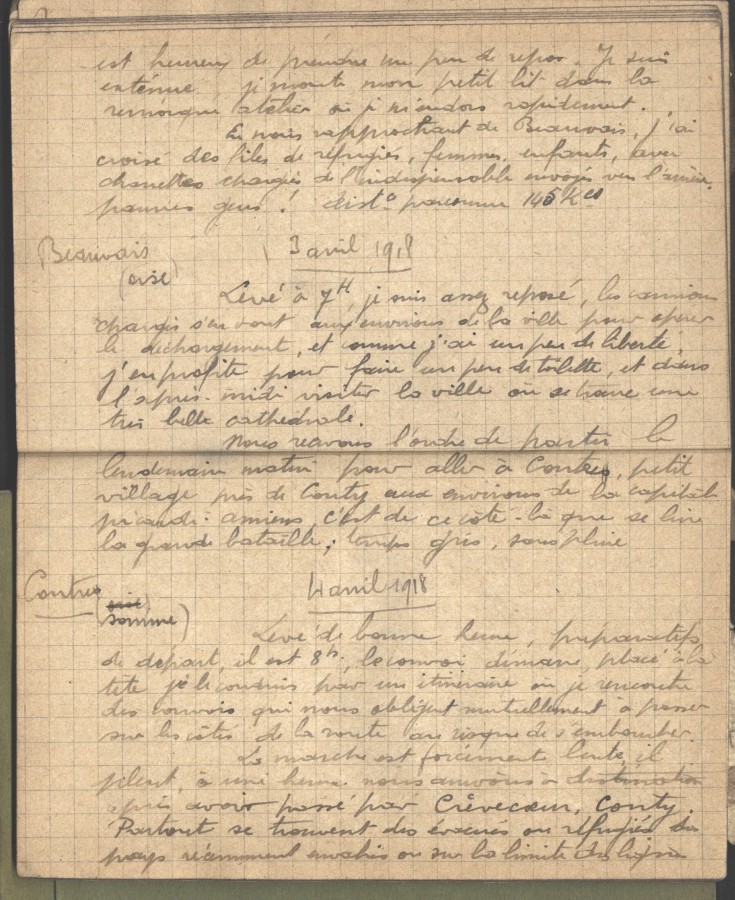 est heureux de prendre un peu de repos. Je suis
exténué je monte mon petit lit dans la
remorque atelier où je m'endors rapidement.
En nous rapprochant de Beauvais, j'ai
croisé des files de réfugiés, femmes, enfants, avec
charrettes chargées de l'indispensable envoyés vers l'arrière,
pauvres gens! dist^ce parcourue 145 K^es
Beauvais
(oise)
3 avril 1918
Levé à 7^H, je suis assez reposé, les camions
chargés s'en vont aux environs de la ville pour opérer
le déchargement, et comme j'ai un peu de liberté
j'en profite pour faire un peu de toilette, et dans
l'après-midi visiter la ville où se trouve une
très belle cathédrale.
Nous recevons l'ordre de partir le
lendemain matin pour aller à Contres, petit
village près de Conty aux environs de la capitale
picarde: amiens, c'est de ce côté-là que se livre
la grande bataille; temps gris, sans pluie
Contres
(oise)
somme)
4 avril 1918
Levé de bonne heure, préparatifs
de départ, il est 8^h, le convoi démarre, placé à la
tête je le conduis par un itinéraire où je rencontre
des convois qui nous obligent mutuellement à passer
sur les côtés de la route au risque de s'embourber.
La marche est forcément lente, il
pleut, à une heure nous arrivons à destination
après avoir passé par Crèvecœur, Conty.
Partout se trouvent des évacués ou réfugiés des
pays récemment envahis ou sur la limite des lignes